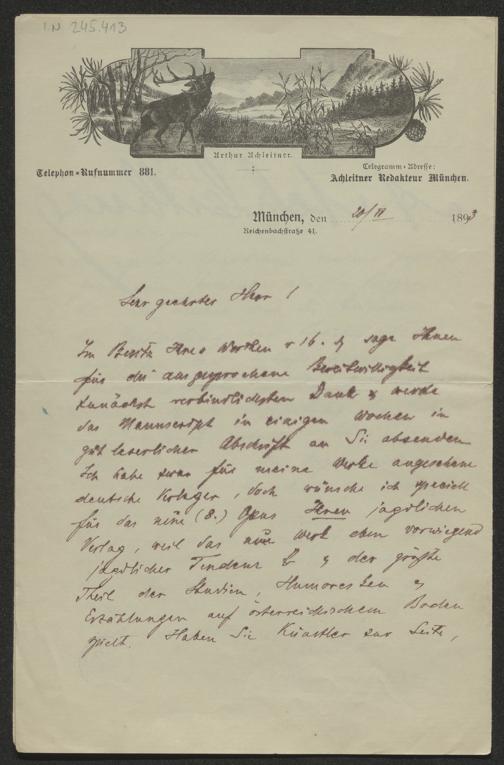 I.N 245.413
Arthur Achleitner.
Telephon-Rufnummer 881.
Telegramm-Adresse:
Achleitner Redakteur München.
München, den 20/II 1893
Reichenbachstraße 41.
Sehr geehrter Herr!
Im Besitz Ihres Werthen v 16. d sage Ihnen
für die ausgesprochene Bereitwilligkeit
zunächst verbindlichsten Dank & werde
das Manuscript in einigen Wochen in
gut leserlicher Abschrift an Sie absenden
Ich habe zwar für meine Werke angesehene
deutsche Verleger, doch wünsche ich speciell
für das neue (8.) Opus Ihren jagdlichen
Verlag, weil das neue Werk eben vorwiegend
jagdlicher Tendenz & der größte
Theil der Studien, Humoresken &
Erzählungen auf österreichischem Boden
spielt. Haben Sie Künstler zur Seite,